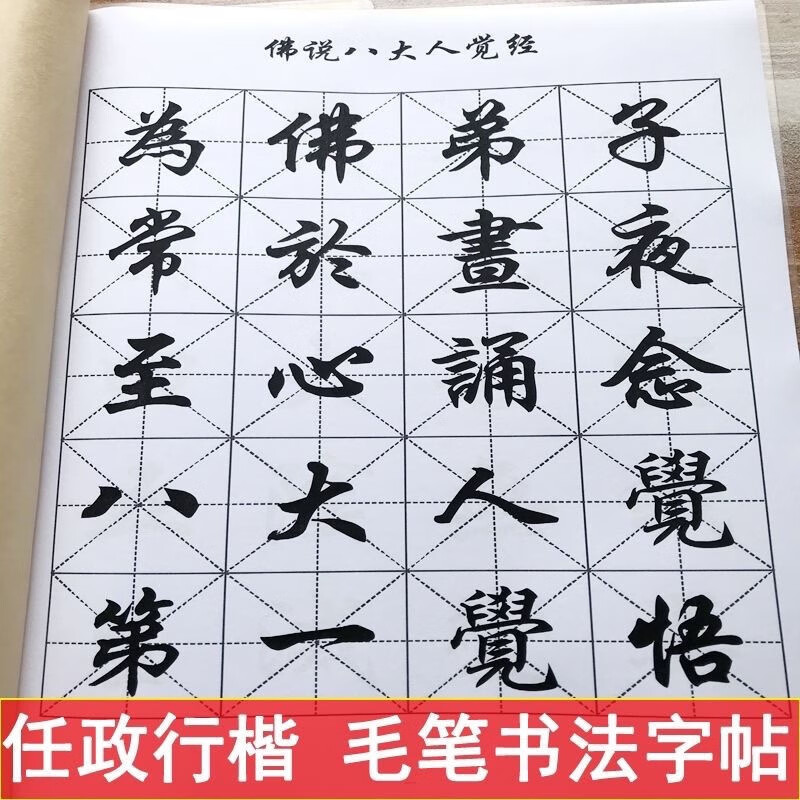 佛说八大人觉经
為佛弟子
常於晝夜
至心誦念
八大人覺
第一覺悟
任政行楷 毛笔书法字帖